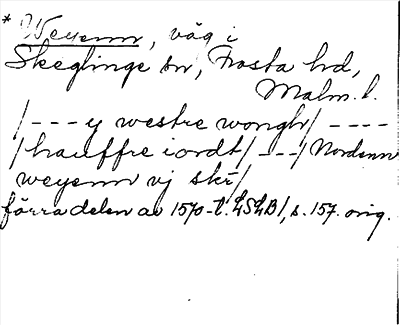 * Weyenn, väg i
Skeglinge sn, Frosta hd,
Malm. l.
/--- y westre wongh/ ----
/hauffre iordt/ ---/ Norden
weyenn vj skr/
förra delen av 1570-t. LSLB/, s. 157. orig.